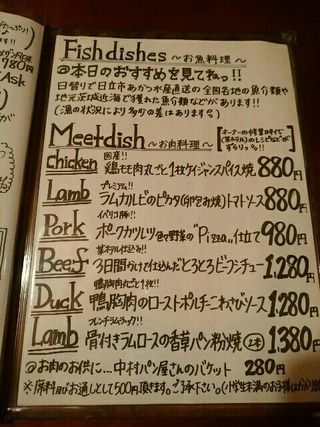 780円
Ask
Fish dishes ～お魚料理～
◎本日のおすすめを見てねっ!!
日替りで日立市あかつ水産直送の全国各地の魚介類や
地元茨城近海で獲れた魚介類などがあります!!
(漁の状況により多少の差はあります)
Meet dish ～お肉料理～
オーナーの修業時代
ずらりっ!!
国産!!
chicken 鶏もも肉丸ごと1枚ケイジャンスパイス焼 880円
プレミアム!!
Lamb ラムカルビのピカタ(卵包み焼)トマトソース 880円
イベリコ豚!!
Pork ポークカツレツ 色々野菜の"Pizza"仕立て 980円
Beef 3日間かけて仕込んだとろとろビーフシチュー 1,280円
鴨胸肉丸ごと1枚!!
Duck 鴨胸肉のローストポルチーニわさびソース 1,280円
フレンチラムラック!!
Lamb 骨付きラムロースの香草パン粉焼 2本 1,380円
◎お肉のお供に…中村パン屋さんのバケット 280円
※席料及びお通しとして500円頂きます。ご了承下さい。